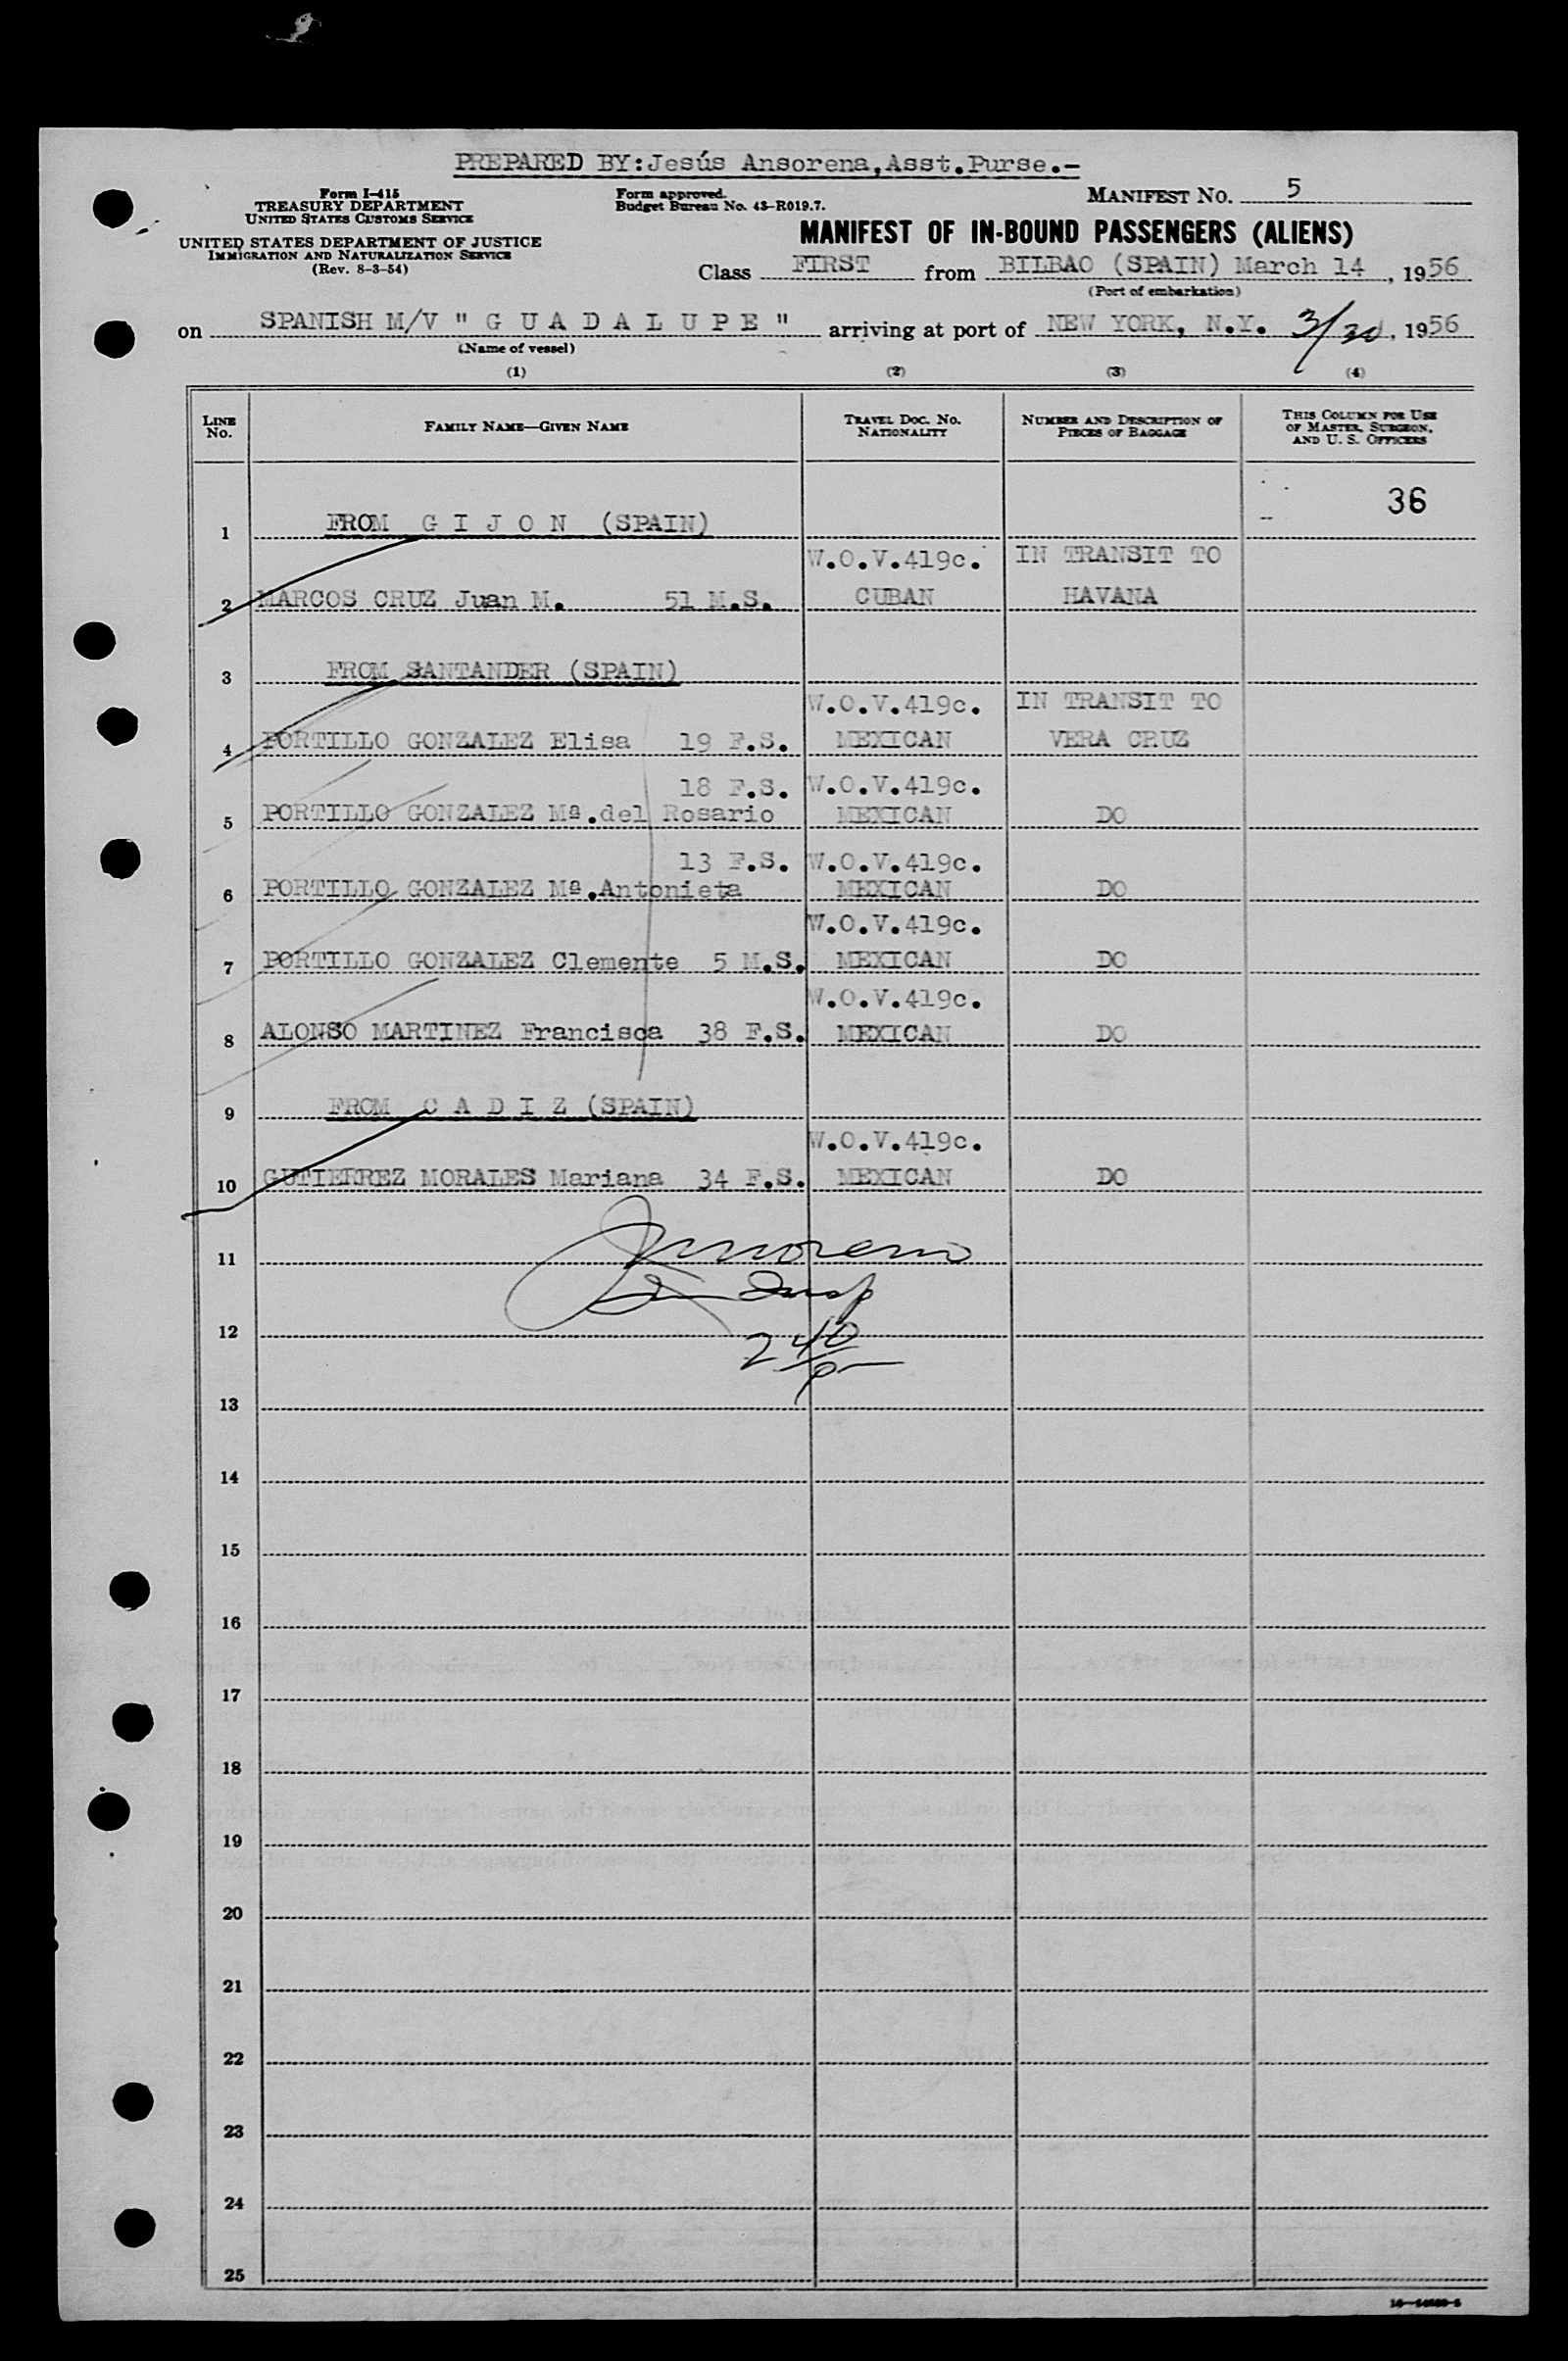 PREPARED BY:Jesús Ansorena,Asst.Purse.-
Form I-415
TREASURY DEPARTMENT
UNITED STATES CUSTOMS SERVICE
UNITED STATES DEPARTMENT OF JUSTICE
IMMIGRATION AND NATURALIZATION SERVICE
(Rev. 8-3-54)
Form approved.
Budget Bureau No. 43-R019.7.
MANIFEST NO. 5
MANIFEST OF IN-BOUND PASSENGERS (ALIENS)
Class FIRST from BILBAO (SPAIN) March 14, 1956
(Port of embarkation)
on SPANISH M/V " G U A D A L U P E " arriving at port of NEW YORK, N.Y. 3/20, 1956
(Name of vessel)
(1) (2) (3) (4)
LINE No. FAMILY NAME—GIVEN NAME TRAVEL DOC. NO. NATIONALITY NUMBER AND DESCRIPTION OF PIECES OF BAGGAGE THIS COLUMN FOR USE OF MASTER, SURGEON, AND U. S. OFFICERS
36
1 FROM G I J O N (SPAIN)
W.O.V.419c. IN TRANSIT TO
2 MARCOS CRUZ Juan M. 51 M.S. CUBAN HAVANA
3 FROM SANTANDER (SPAIN)
W.O.V.419c. IN TRANSIT TO
4 PORTILLO GONZALEZ Elisa 19 F.S. MEXICAN VERA CRUZ
18 F.S. W.O.V.419c.
5 PORTILLO GONZALEZ Mª.del Rosario MEXICAN DO
13 F.S. W.O.V.419c.
6 PORTILLO GONZALEZ Mª.Antonieta MEXICAN DO
W.O.V.419c.
7 PORTILLO GONZALEZ Clemente 5 M.S. MEXICAN DO
W.O.V.419c.
8 ALONSO MARTINEZ Francisca 38 F.S. MEXICAN DO
9 FROM C A D I Z (SPAIN)
W.O.V.419c.
10 GUTIERREZ MORALES Mariana 34 F.S. MEXICAN DO
11
Insp
12
2 40
p
13
14
15
16
17
18
19
20
21
22
23
24
25